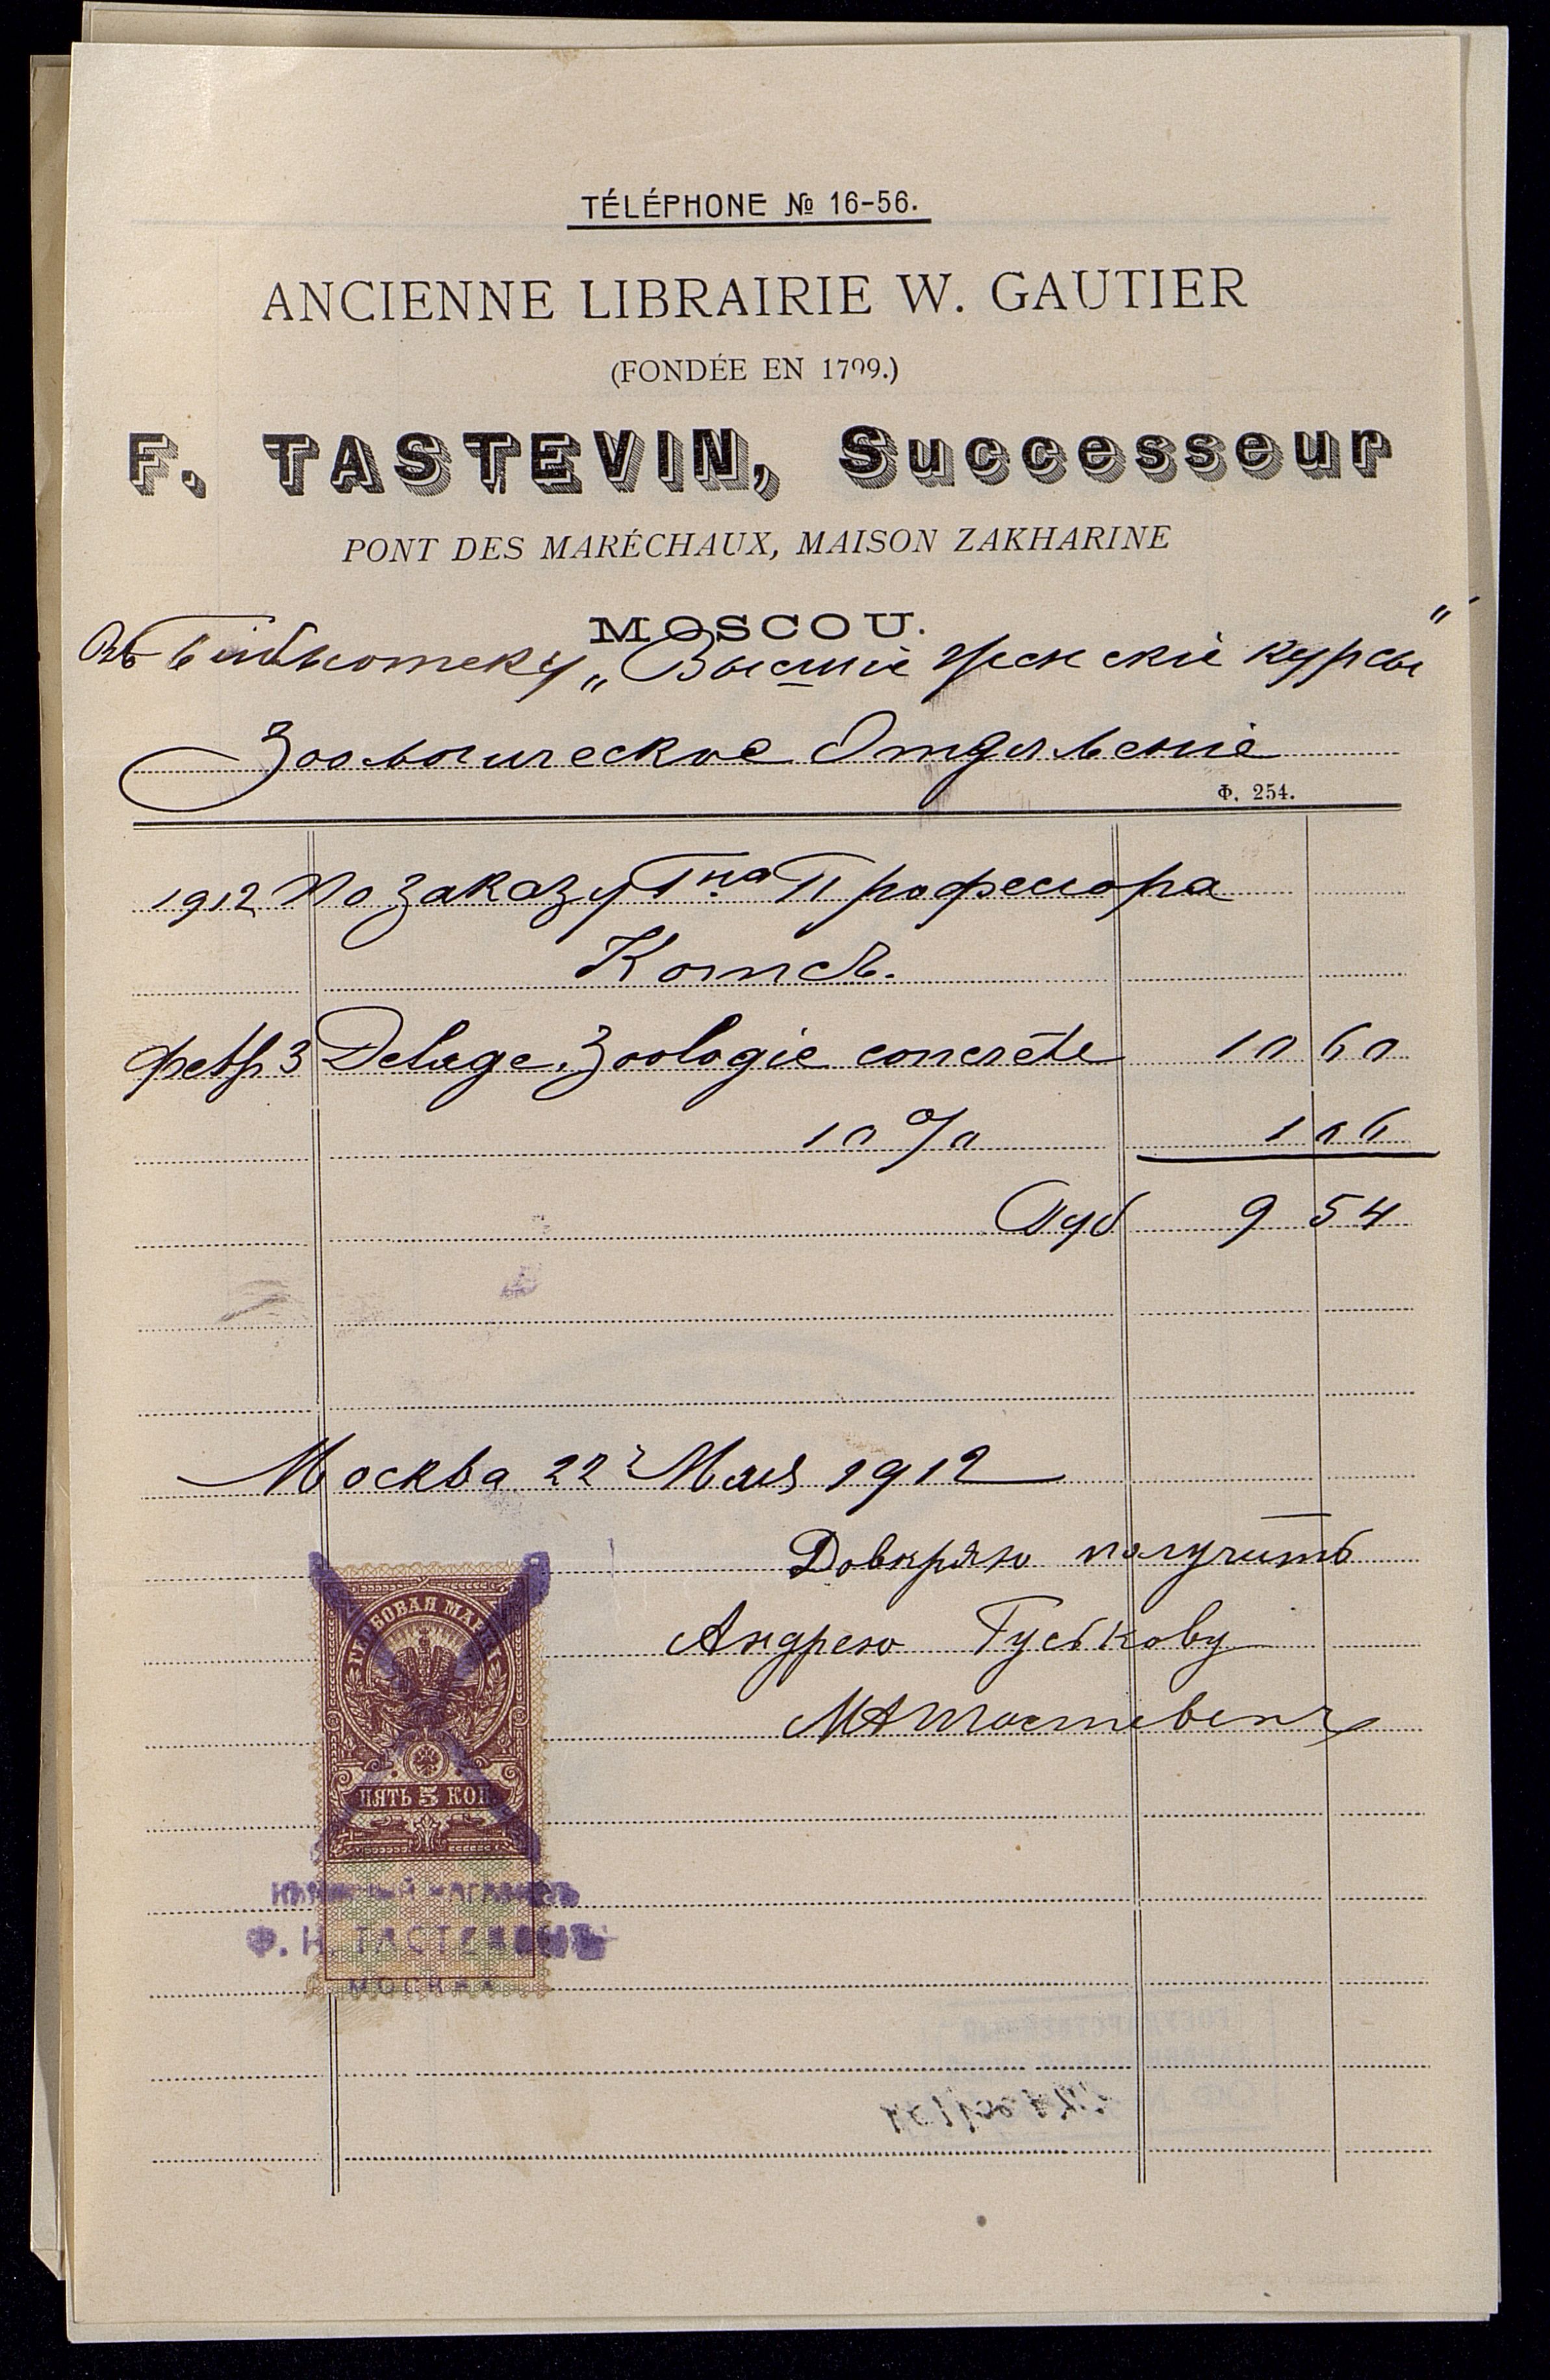 TÉLÉPHONE № 16-56.
ANCIENNE LIBRAIRIE W. GAUTIER
(FONDÉE EN 1799.)
F. TASTEVIN, Successeur
PONT DES MARÉCHAUX, MAISON ZAKHARINE
MOSCOU.
Въ Библіотеку „Высшіе женскіе курсы"
Зоологическое Отдѣленіе
Ф. 254.
1912 По заказу Гна Профессора
Котсъ.
Февр 3 Delage. Zoologie concrète 10 60
10 % 1 06
Руб 9 54
Москва 22 Мая 1912
Довѣряю получить
Андрею Гуськову
ГЕРБОВАЯ МАРКА
ПЯТЬ 5 КОП.
КНИЖНЫЙ МАГАЗИНЪ
Ф. Н. ТАСТЕВЕНЪ
МОСКВА